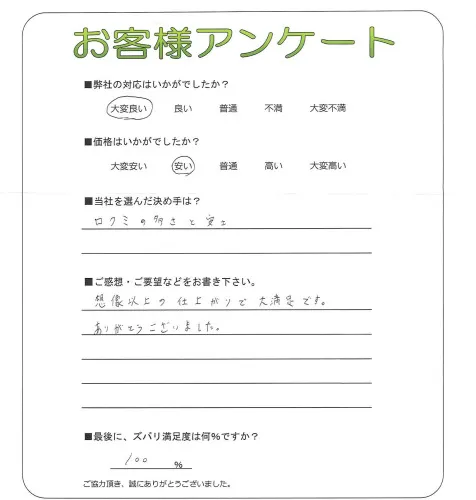 お客様アンケート
■弊社の対応はいかがでしたか？
大変良い 良い 普通 不満 大変不満
■価格はいかがでしたか？
大変安い 安い 普通 高い 大変高い
■当社を選んだ決め手は？
口クミの多さと安さ
■ご感想・ご要望などをお書き下さい。
想像以上の仕上がりで大満足です。
ありがとうございました。
■最後に、ズバリ満足度は何％ですか？
100 %
ご協力頂き、誠にありがとうございました。